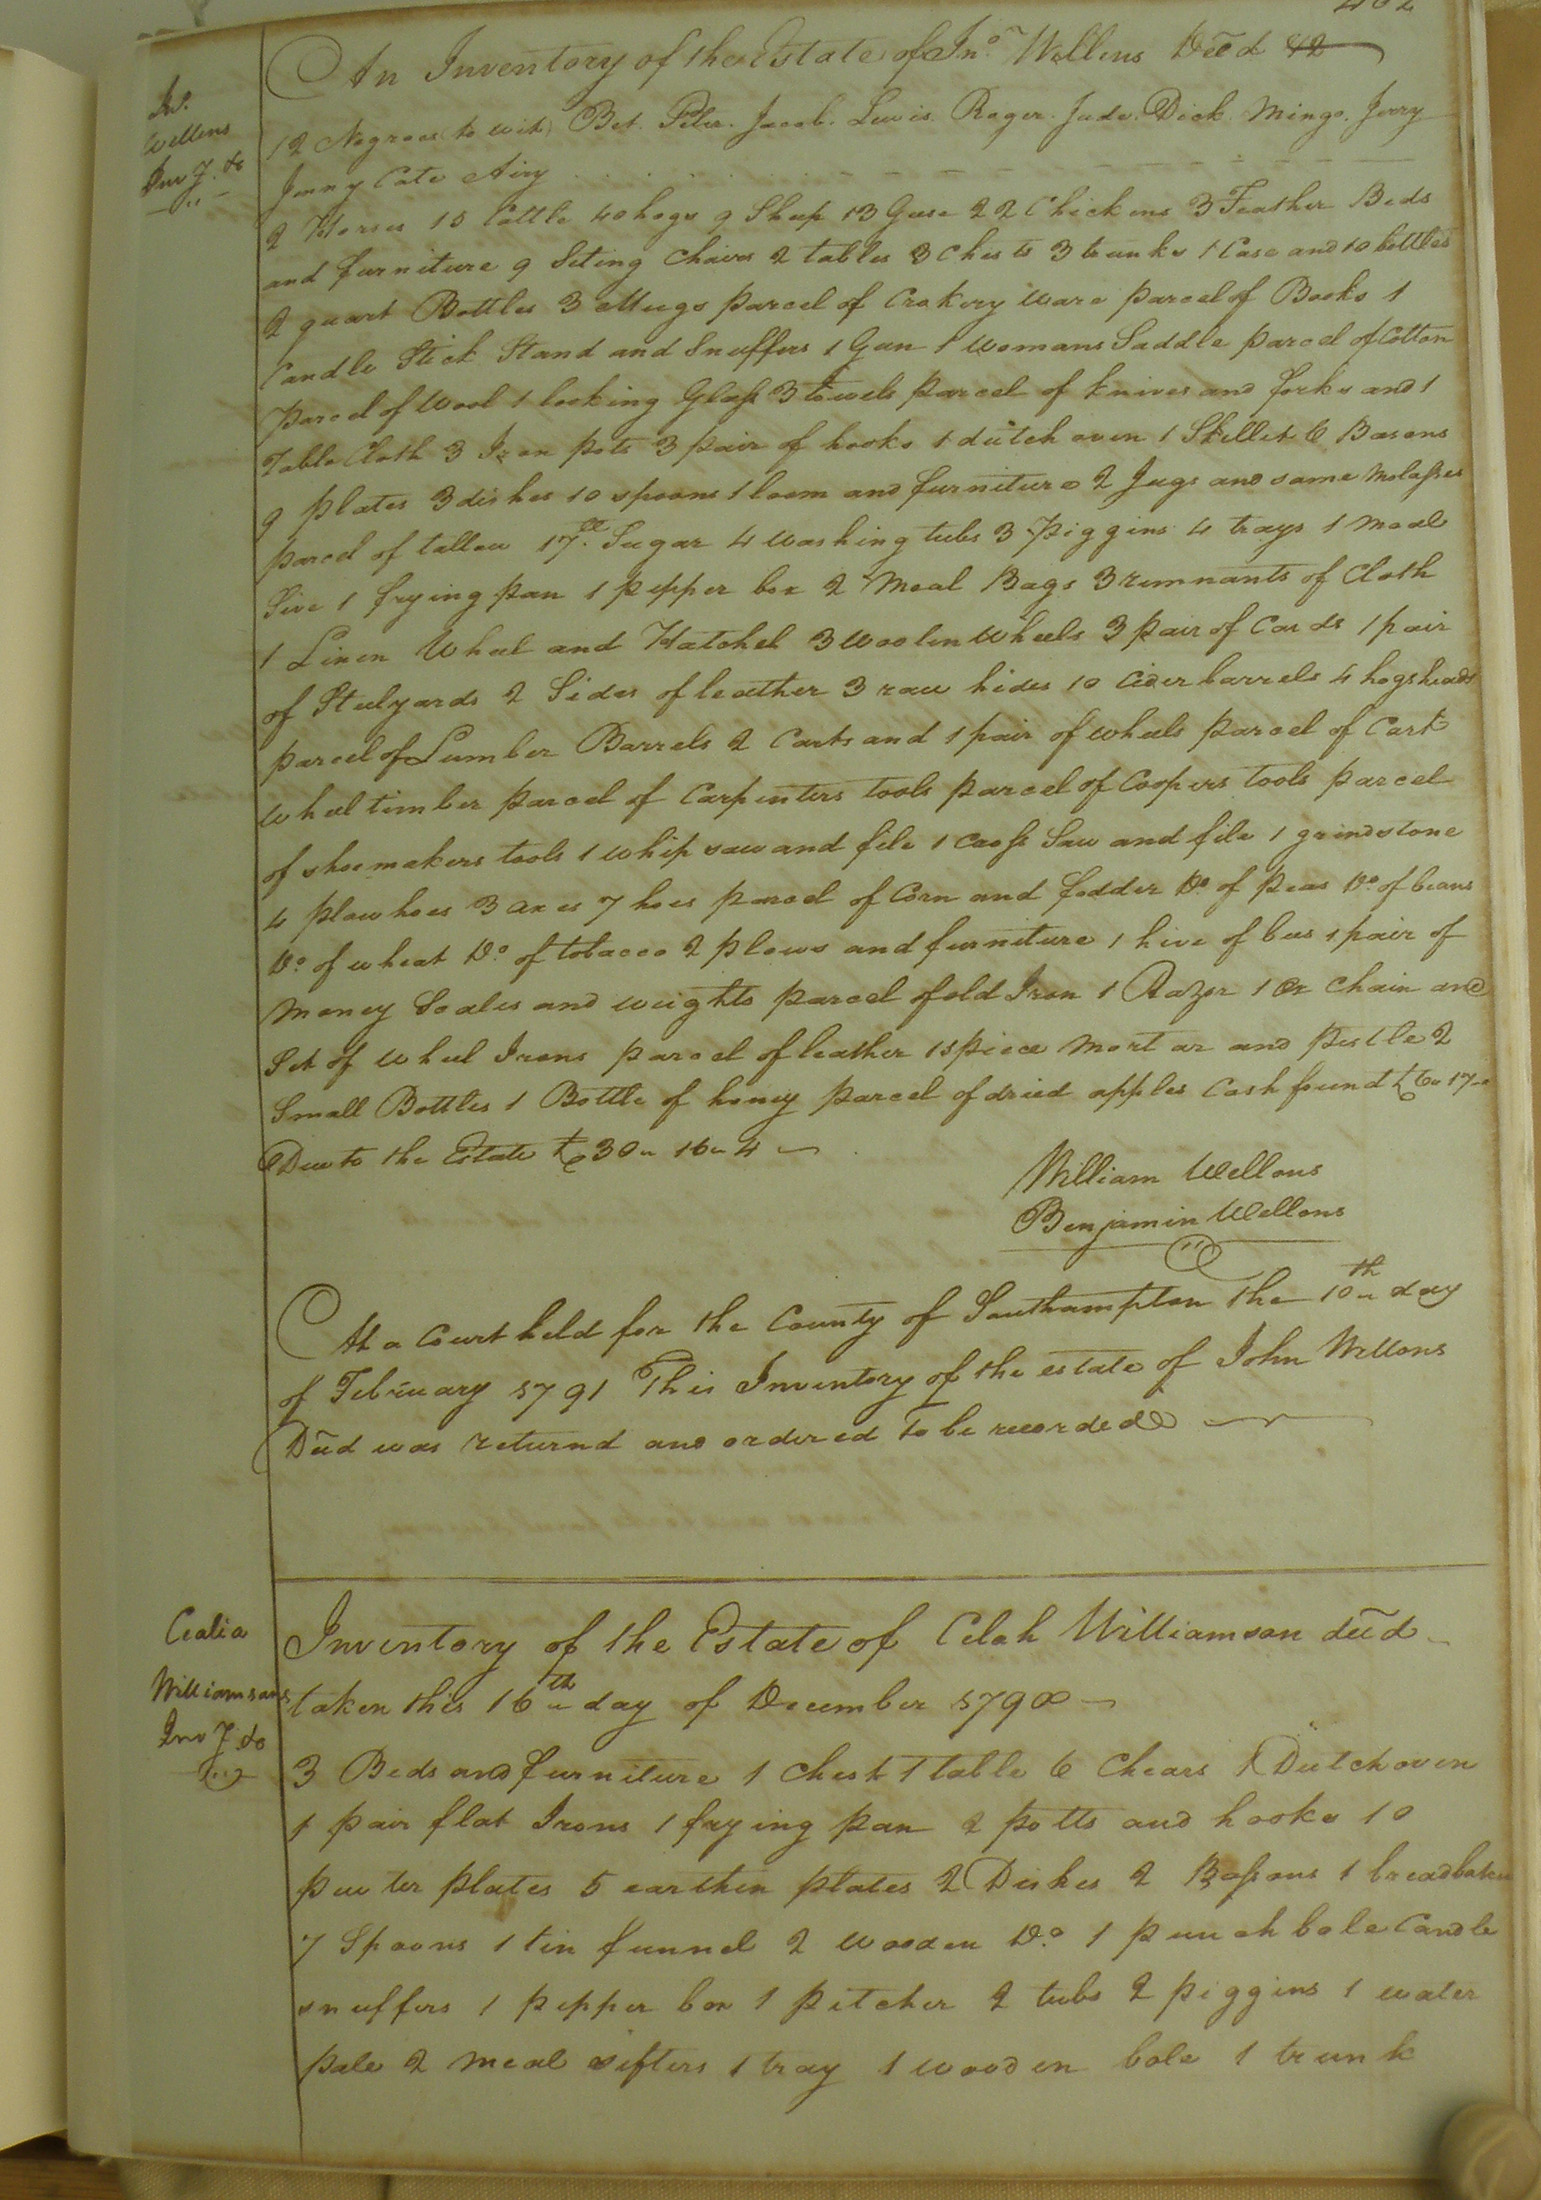 402
An Inventory of the Estate of Jno. Wellens Deēd
Jno.
Wellens
Invy. &c
12 Negroes (to wit) Bet. Peter. Jacob. Lewis. Roger. Jude. Dick. Mingo. Jerry
Jenny Cate Airy
2 Horses 15 Cattle 40 hogs 9 Sheep 13 Geese 22 Chickens 3 Feather Beds
and furniture 9 Seting Chairs 2 tables 3 Chests 3 trunks 1 Case and 10 bottles
2 quart Bottles 3 Mugs parcel of Crokery Ware parcel of Books 1
Candle Stick Stand and Snuffers 1 Gun 1 Womans Saddle parcel of Cotton
Parcel of Wool 1 looking Glass 3 towels parcel of knives and forks and 1
Table Cloth 3 Iron pots 3 pair of hooks 1 dutch oven 1 Skillet 6 Basons
9 plates 3 dishes 10 spoons 1 loom and furniture 2 Jugs and some Molasses
parcel of tallow 17 ll. Sugar 4 washing tubs 3 Piggins 4 trays 1 Meal
Sive 1 frying pan 1 pepper box 2 Meal Bags 3 remnants of Cloth
1 Linen Wheel and Hatchel 3 woolen Wheels 3 pair of Cards 1 pair
of Steelyards 2 Sides of leather 3 raw hides 10 Cider barrels 4 hogsheads
parcel of Lumber Barrels 2 Carts and 1 pair of wheels parcel of Cart
wheel timber parcel of Carpenters tools parcel of Coopers tools parcel
of shoemakers tools 1 whip saw and file 1 cross Saw and file 1 grindstone
4 plow hoes 3 axes 7 hoes parcel of Corn and fodder Do. of peas Do. of beans
Do. of wheat Do. of tobacco 2 plows and furniture 1 hive of bees 1 pair of
Money Scales and weights parcel of old Iron 1 Razor 1 Ox Chain and
Set of wheel Irons parcel of leather 1 spice Mortar and pestle 2
Small Bottles 1 Bottle of honey parcel of dried apples Cash found £6 " 17 "
Due to the Estate £30 " 16 " 4
William Wellons
Benjamin Wellons
At a Court held for the County of Southampton the 10th day
of February 1791 This Inventory of the estate of John Wellons
Deēd was returnd and ordered to be recorded
Cealia
Williamsons
Invy. &c
Inventory of the Estate of Celah Williamson deēd
taken this 16th day of December 1790
3 Beds and furniture 1 Chest 1 table 6 Chears 1 Dutch oven
1 pair flat Irons 1 frying pan 2 potts and hooks 10
pewter plates 5 earthen plates 2 Dishes 2 Bassons 1 bread
7 Spoons 1 tin funnel 2 wooden Do. 1 punch bole Candle
snuffers 1 pepper box 1 pitcher 2 tubs 2 piggins 1 water
pale 2 meal sifters 1 tray 1 wooden bole 1 trunk